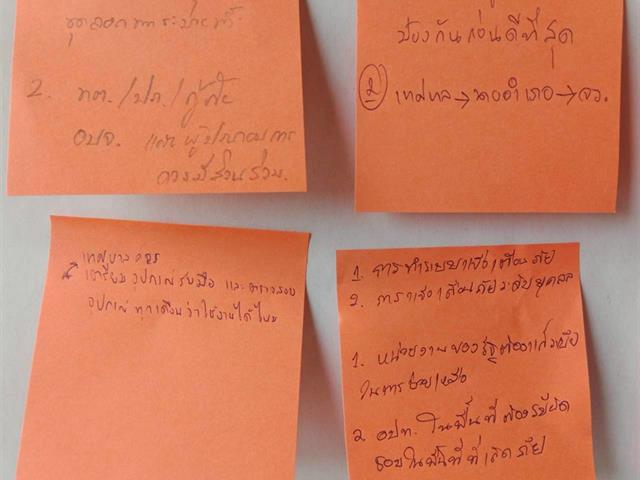 ขุดลอกทางระบายน้ำ
2. ทต./ปภ./กู้ภัย
อบจ. และผู้ประกอบการ
ควรมีส่วนร่วม.
ป้องกันก่อนดีที่สุด
② เทศบาล→นายอำเภอ→จว.
เทศบาลควร
เตรียมอุปกรณ์รับมือ และตรวจสอบ
อุปกรณ์ทุกเดือนว่าใช้งานได้ไหม
1. การทำระบบแจ้งเตือนภัย
2. การแจ้งเตือนภัยระดับบุคคล
1. หน่วยงานของรัฐต้อง
ในการช่วยเหลือ
2. อปท. ในพื้นที่ต้องรับผิด
ชอบในพื้นที่ที่เกิดภัย